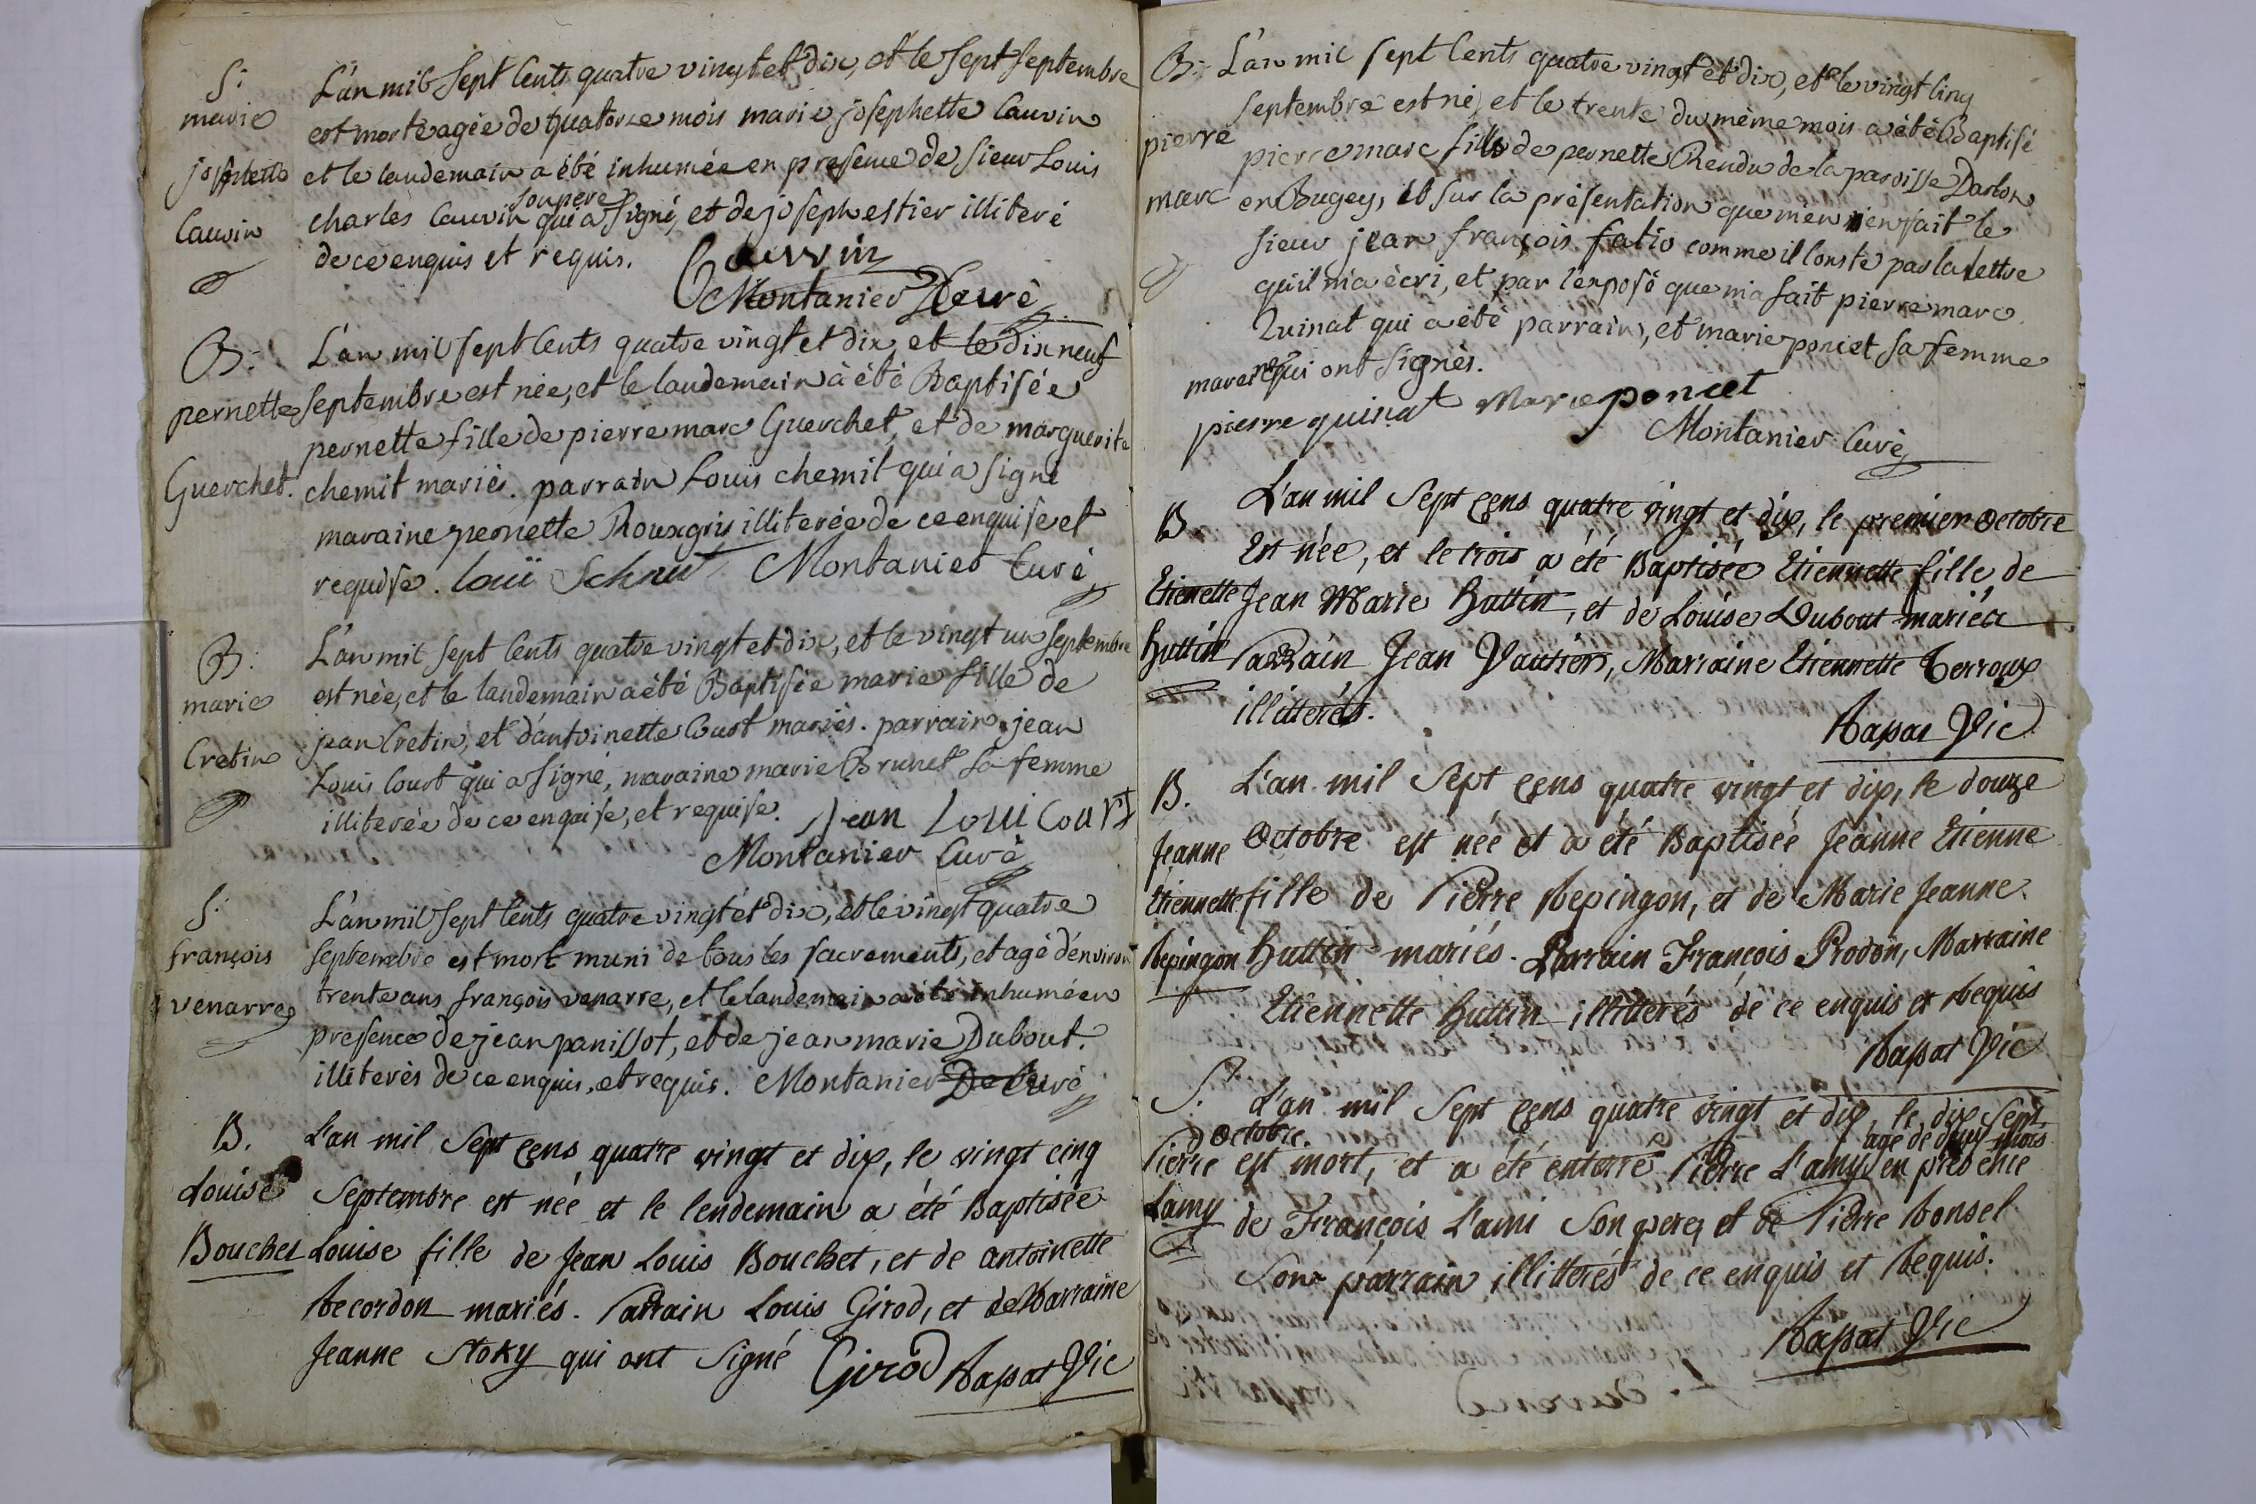 S:
marie
josephette
Cauvin
L'an mil sept Cents quatre vingt et dix, et le sept septembre
est morte agée de quatorze mois marie josephette Cauvin
et le landemain a été inhumée en presence de sieur Louis
son pere
charles Cauvin qui a signé, et de joseph estier illiteré
de ce enquis et requis.
Cauvin
Montanier Curé
B:
pernette
Guerchet.
L'an mil sept Cents quatre vingt et dix et le dix neuf
septembre est née, et le landemain à été Baptisée
pernette fille de pierre marc Guerchet, et de marguerite
chemit mariés. parrain Louis chemit qui a signé
maraine pernette Rouxgris illiterée de ce enquise et
requise. louï Schmit Montanier Curé
B:
marie
Cretin
L'an mil sept Cents quatre vingt et dix, et le vingt un septembre
est née, et le landemain a été Baptisée marie fille de
jean Cretin, et d'antoinette Court mariés. parrain jean
Louis Court qui a signé, maraine marie Brunet sa femme
illiterée de ce enquise, et requise. Jean Loui Court
Montanier Curé
S:
françois
venarre
L'an mil sept Cents quatre vingt et dix, et le vingt quatre
septembre est mort muni de tous les sacrements, et agé d'environ
trente ans françois venarre, et le landemain a été inhumé en
presence de jean panissot, et de jean marie Dubout.
illiterés de ce enquis, et requis. Montanier Curé
B.
Louise
Bouchet
L'an mil Sept Cens quatre vingt et dix, le vingt cinq
Septembre est née et le lendemain a été Baptisée
Louise fille de Jean Louis Bouchet, et de antoinette
Recordon mariés. Parrain Louis Girod, et de Marraine
Jeanne Stoky qui ont Signé Girod Rapat Vic
B:
pierre
marc
L'an mil sept Cents quatre vingt et dix, et le vingt Cinq
septembre est né, et le trente du même mois a été Baptisé
pierre marc fils de pernette Rendu de la paroisse Darbon
en Bugey, et sur la présentation que m'en fait le
sieur jean françois fatio comme il Conste par la lettre
qu'il m'a écri, et par l'exposé que m'a fait pierre marc
Quinat qui a été parrain, et marie poncet sa femme
maraine qui ont signés.
pierre quinat Marie poncet
Montanier Curé
B.
Etienette
Huttin
L'an mil Sept Cens quatre vingt et dix, le premier Octobre
Est née, et le trois a été Baptisée Etiennette fille de
Jean Marie Huttin, et de Louise Dubout mariés
Parrain Jean Vautiers, Marraine Etiennette Terroux
illitterés.
Rapat Vic
B.
Jeanne
Etiennette
Repingon
L'an mil Sept Cens quatre vingt et dix, le douze
Octobre est née et a été Baptisée Jeanne Etienne
fille de Pierre Repingon, et de Marie Jeanne
Huttin mariés. Parrain François Prodon, Marraine
Etiennette Huttin illitterés de ce enquis et Requis
Rapat Vic
S.
Pierre
Lamy
L'an mil Sept Cens quatre vingt et dix, le dix Sept
Octobre. agé de deux mois
est mort, et a été enterré Pierre L'amy en presence
de François L'ami Son pere, et de Pierre Ronsel
Son parrain illitterés de ce enquis et Requis.
Rapat Vic